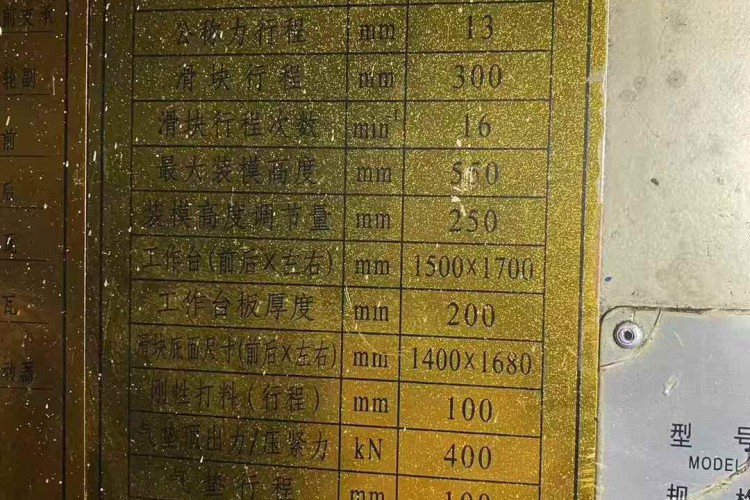 前支承
轮副
前
后
瓦
瓦
动器
公称力行程 mm 13
滑块行程 mm 300
滑块行程次数 min⁻¹ 16
最大装模高度 mm 550
装模高度调节量 mm 250
工作台(前后×左右) mm 1500×1700
工作台板厚度 mm 200
滑块底面尺寸(前后×左右) mm 1400×1680
刚性打料(行程) mm 100
气垫顶出力/压紧力 kN 400
气垫行程 mm
型 号
MODEL
规